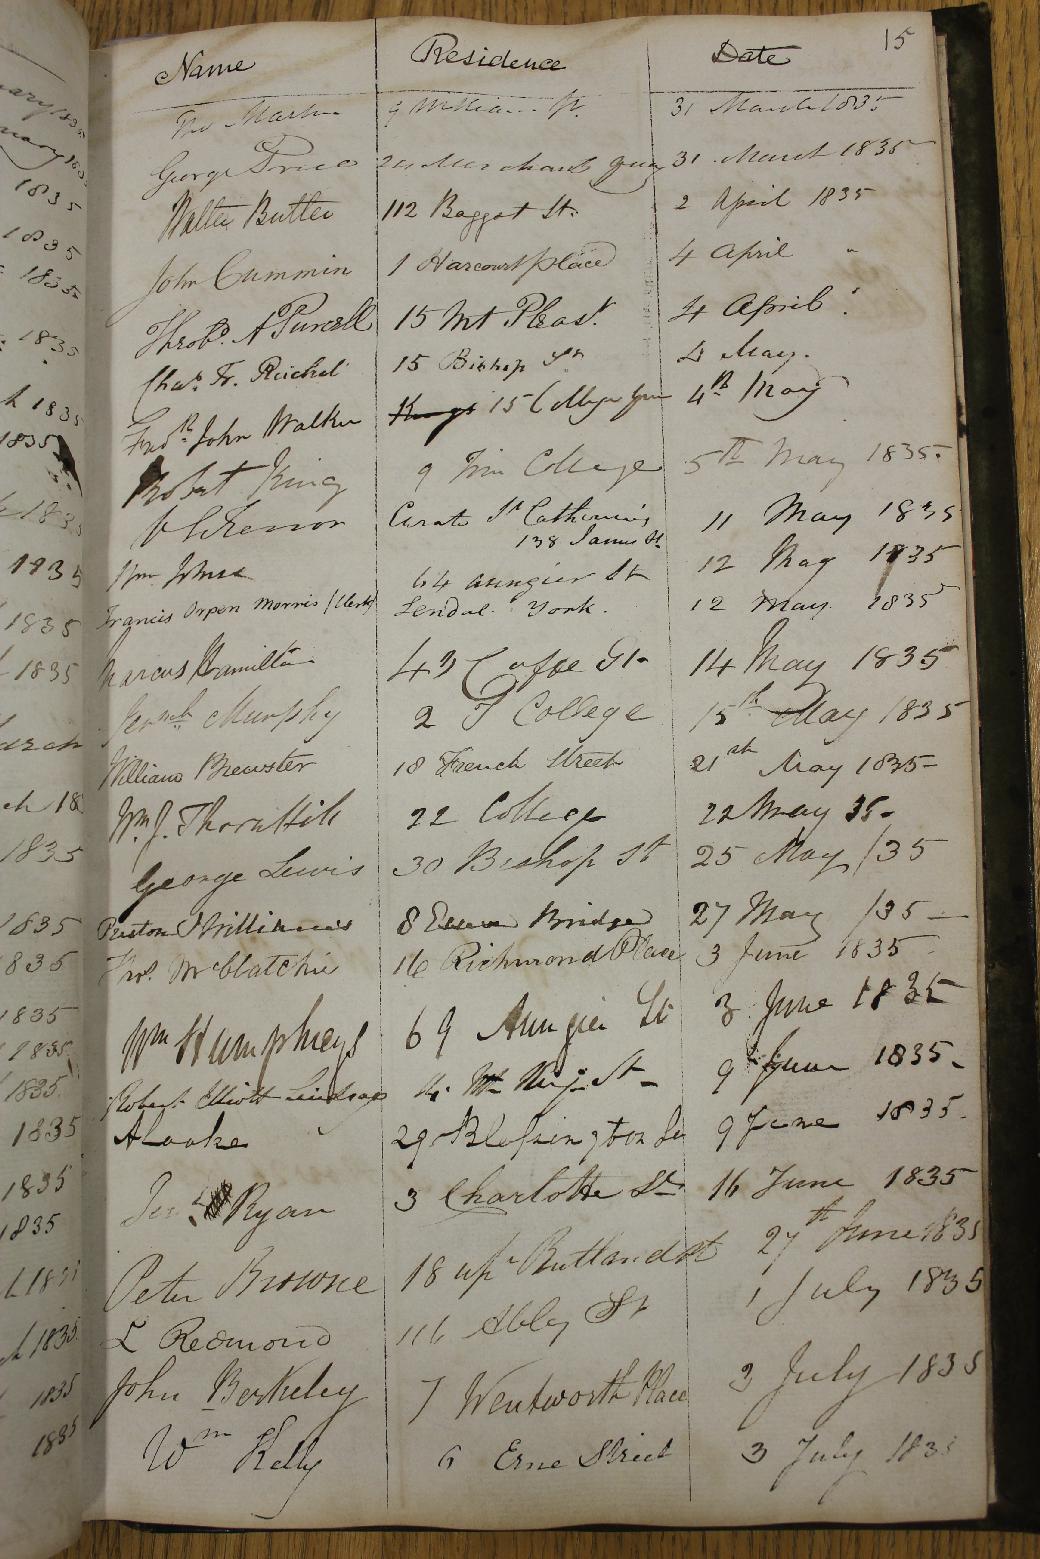 15
Name Residence Date
Tho Martin 9 William St. 31 March 1835
George Price 24 Merchant Quay 31 March 1835
Walter Butler 112 Baggot St. 2 April 1835
John Cummin 1 Harcourt place 4 April "
A Purcell 15 Mt Pleast. 4 April "
Chas. Fr. Reichel 15 Bishop St 4 May.
Fredk. John Walker 15 College Grn 4th May
Robert King 9 Trin College 5th May 1835-
Curate St Catherine's 11 May 1835
138 James St
Wm 64 aungier St 12 May 1835
Francis Orpen Morris (Clerk) Lendal York. 12 May 1835
Marcus Hamilton 43 Cuffe St- 14 May 1835
Murphy 2 T College 15th May 1835
William Brewster 18 French Street 21st May 1835-
Wm. J. Thornhill 22 College 22 May 35-
George Lewis 30 Bishop St 25 May /35
8 Bridge 27 May /35-
Thos. McClatchie 16 Richmond Place 3 June 1835
Wm Humphreys 69 Aungier St 3 June 1835
Robert Elliott Lindsay 9 June 1835-
A Cooke 29 Blessington St 9 June 1835-
Ryan 3 Charlotte St 16 June 1835
Peter Browne 18 upr Rutland st 27th June 1835
L Redmond 116 Abby St 1 July 1835
John Berkeley 7 Wentworth Place 3 July 1835
Wm Kelly 6 Erne Street 3 July 183
1835
1835
1835
1835
1835
1835
1835
1835
1835
1835
arch
ch 18
1835
1835
835
1835
1835
1835
1835
1835
1835
1835
1835
1835